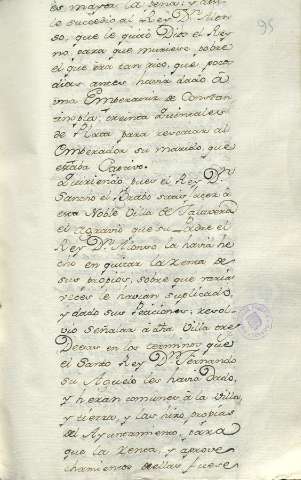 95
es mayor la pena; y assi
le sucedio al Rey Dn. Alon-
so, que le quitó Dios el Rey
no, para que muriese, pobre
el que era tan rico, que pocos
dias antes havia dado a
una Emperatriz de Constan
tinopla, treinta quintales
de Plata para rescatar al
Emperador su marido, que
estaba Captivo.
Queriendo, pues el Rey Dn.
Sancho el Brabo satisfacer à
esta Noble Villa de Talavera
el agravio que su Padre el
Rey Dn. Alonso la havia he
cho en quitar la Renta de
sus propios, sobre que varias
veces le havian suplicado,
y dado sus Peticiones, resol-
vio señalar à dha. Villa tres
Deesas en los terminos que
el Santo Rey Dn. Fernando
su Aguelo les havia Dado,
y heran comunes à la Villa,
y tierra, y las hizo propias
del Ayuntamiento, para
que la Renta, y aprove
chamientos de ellas fuese